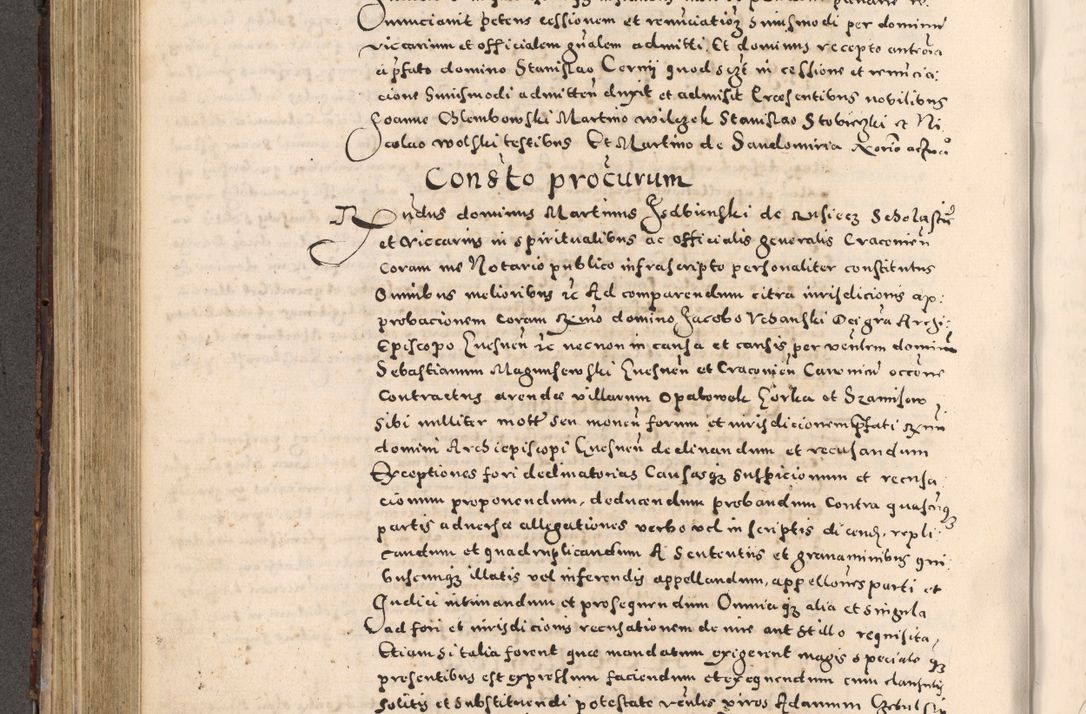 nunciavit petens cessionem et renuciatioz huiusmodi per dominu
viccarium et officialem gnalem admitti, Et dominus recepto
a pfato domino Stanislao Cernij quod sczt in cessione et renucia:
cione huiusmodi admitten duxit et admisit Presentibus nobilibus
Joanne Glembowski Martino wilczek Stanislao et Ni
colao wolski testibus Et Martino de Sandomiria Norio
Constto procururum
Rndus dominus Martinus Isdbienski de Rusiecz Scholastic
et viccarius in spiritualibus ac officialis generalis Cracovien
Coram me Notario publico infrascripto personaliter constitutus
Omnibus melioribus rc Ad comparendum citra iurisdicionis ap:
probacionem Coram Rmo domino Jacobo Vchanski Dei gra Archi:
Episcopo Gnesnen rc necnon in causa et causis per venlem dominu
Sebastianum Magnuschewski Gnesnen et Cracovien Canonicu occone
Contractus arendae villarum Opatowek Gorka et Szanisow
sibi nulliter motte seu monen forum et iurisdicionem pfati Rmi
domini Archiepiscopi Gnesnen declinandum et recusandum
Exceptiones fori declinatorias Causasqz suspicionum et recusa
cionum proponendum, deducendum probandum Contra quascuqz
partis adversa allegationes verbo vel in scriptis dicend, repli
candum et quadruplicandum A sententiis et gravaminibus qui
buscumqz illatis vel inferendis appellandum, appellones parti et
Judici intimandum et prosequendum Omnia qz alia et singula
ad fori et iurisdicionis recusationem de iure aut stillo requisita,
Etiam si talia forent quae mandatum exigerent magis speciale qz
presentibus est expressum faciendum et exequendum cum clausulis
solitis et substituendi potestate venles viros Adamum